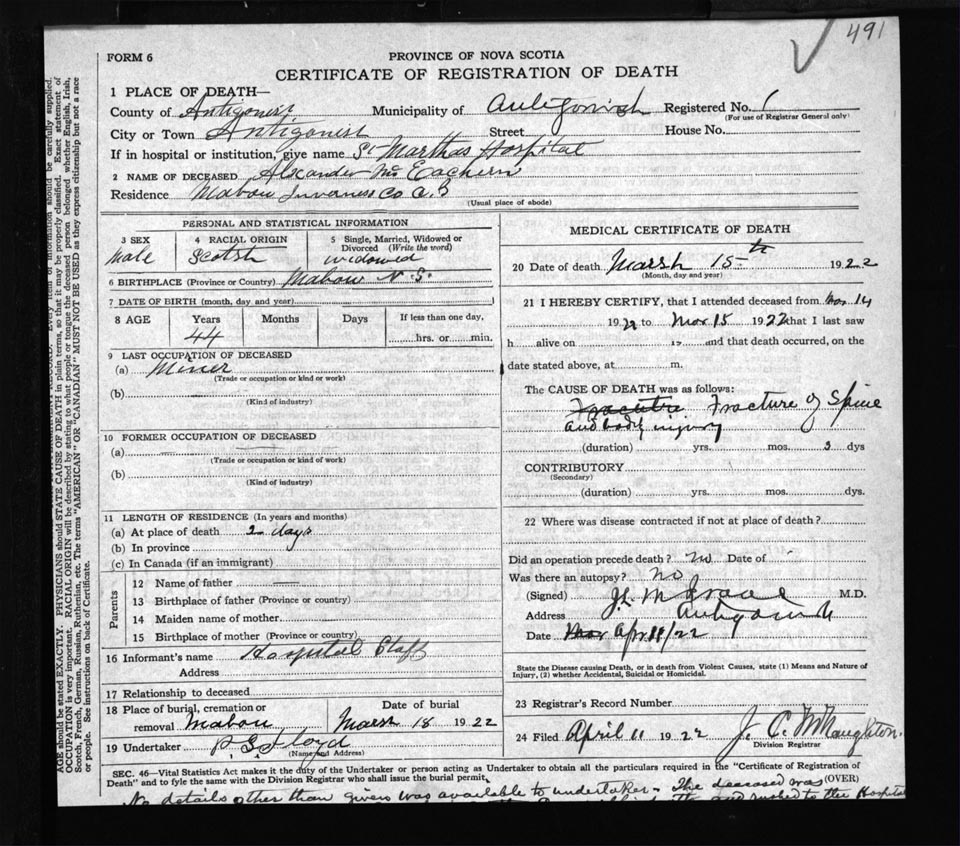 491
FORM 6
PROVINCE OF NOVA SCOTIA
CERTIFICATE OF REGISTRATION OF DEATH
1 PLACE OF DEATH—
County of Antigonish Municipality of Antigonish Registered No. 1
(For use of Registrar General only)
City or Town Antigonish Street House No.
If in hospital or institution, give name St Marthas Hospital
2 NAME OF DECEASED Alexander Mc Eachern
Residence Mabou Inverness Co
(Usual place of abode)
PERSONAL AND STATISTICAL INFORMATION
3 SEX 4 RACIAL ORIGIN 5 Single, Married, Widowed or Divorced (Write the word)
Male Scotsh widowed
6 BIRTHPLACE (Province or Country) Mabou N S.
7 DATE OF BIRTH (month, day and year)
8 AGE Years Months Days If less than one day,
44 hrs. or min.
9 LAST OCCUPATION OF DECEASED
(a) Miner
(Trade or occupation or kind or work)
(b)
(Kind of industry)
10 FORMER OCCUPATION OF DECEASED
(a)
(Trade or occupation or kind of work)
(b)
(Kind of industry)
11 LENGTH OF RESIDENCE (In years and months)
(a) At place of death 2 days
(b) In province
(c) In Canada (if an immigrant)
Parents
12 Name of father
13 Birthplace of father (Province or country)
14 Maiden name of mother
15 Birthplace of mother (Province or country)
16 Informant's name Hospital Staff
Address
17 Relationship to deceased
18 Place of burial, cremation or removal Mabou
Date of burial
Marsh 18 1922
19 Undertaker P G Floyd
(Name and Address)
MEDICAL CERTIFICATE OF DEATH
20 Date of death Marsh 15th 1922
(Month, day and year)
21 I HEREBY CERTIFY, that I attended deceased from Mar 14
1922 to Mar 15 1922 that I last saw
h alive on 19 and that death occurred, on the
date stated above, at m.
The CAUSE OF DEATH was as follows:
Fracutre Fracture of Spine
and body injury
(duration) yrs. mos. 3 dys
CONTRIBUTORY
(Secondary)
(duration) yrs. mos. dys.
22 Where was disease contracted if not at place of death?
Did an operation precede death? no Date of
Was there an autopsy? no
(Signed) M.D.
Address Antigonish
Date Mar Apr 11/22
State the Disease causing Death, or in death from Violent Causes, state (1) Means and Nature of
Injury, (2) whether Accidental, Suicidal or Homicidal.
23 Registrar's Record Number
24 Filed April 11 1922 J. C. McNaughton.
Division Registrar
SEC. 46—Vital Statistics Act makes it the duty of the Undertaker or person acting as Undertaker to obtain all the particulars required in the "Certificate of Registration of
Death" and to fyle the same with the Division Registrar who shall issue the burial permit.
(OVER)
No details other than given was available to undertaker. The deceased was
rushed to the Hospital
AGE should be stated EXACTLY. PHYSICIANS should STATE CAUSE OF DEATH in plain terms, so that it may be properly classified. Exact statement of
OCCUPATION is very important. RACIAL ORIGIN will be described by stating to what people or tongue the deceased person belonged whether English, Irish,
Scotch, French, German, Russian, Ruthenian, etc. The terms "AMERICAN" OR "CANADIAN" MUST NOT BE USED as they express citizenship but not a race
or people. See instructions on back of Certificate.